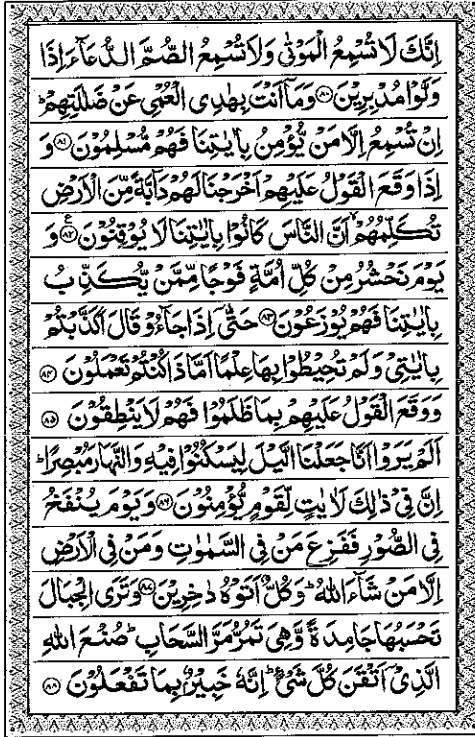 اِنَّكَ لَا تُسْمِعُ الْمَوْتٰى وَلَا تُسْمِعُ الصُّمَّ الدُّعَآءَ اِذَا
وَلَّوْا مُدْبِرِيْنَ ۝۸۰ وَمَاۤ اَنْتَ بِهٰدِى الْعُمْىِ عَنْ ضَلٰلَتِهِمْ ؕ
اِنْ تُسْمِعُ اِلَّا مَنْ يُّؤْمِنُ بِاٰيٰتِنَا فَهُمْ مُّسْلِمُوْنَ ۝۸۱ وَ
اِذَا وَقَعَ الْقَوْلُ عَلَيْهِمْ اَخْرَجْنَا لَهُمْ دَآبَّةً مِّنَ الْاَرْضِ
تُكَلِّمُهُمْ ۙ اَنَّ النَّاسَ كَانُوْا بِاٰيٰتِنَا لَا يُوْقِنُوْنَ ۝۸۲ ع وَ
يَوْمَ نَحْشُرُ مِنْ كُلِّ اُمَّةٍ فَوْجًا مِّمَّنْ يُّكَذِّبُ
بِاٰيٰتِنَا فَهُمْ يُوْزَعُوْنَ ۝۸۳ حَتّٰۤى اِذَا جَآءُوْ قَالَ اَكَذَّبْتُمْ
بِاٰيٰتِىْ وَلَمْ تُحِيْطُوْا بِهَا عِلْمًا اَمَّاذَا كُنْتُمْ تَعْمَلُوْنَ ۝۸۴
وَوَقَعَ الْقَوْلُ عَلَيْهِمْ بِمَا ظَلَمُوْا فَهُمْ لَا يَنْطِقُوْنَ ۝۸۵
اَلَمْ يَرَوْا اَنَّا جَعَلْنَا الَّيْلَ لِيَسْكُنُوْا فِيْهِ وَالنَّهَارَ مُبْصِرًا ؕ
اِنَّ فِىْ ذٰلِكَ لَاٰيٰتٍ لِّقَوْمٍ يُّؤْمِنُوْنَ ۝۸۶ وَيَوْمَ يُنْفَخُ
فِى الصُّوْرِ فَفَزِعَ مَنْ فِى السَّمٰوٰتِ وَمَنْ فِى الْاَرْضِ
اِلَّا مَنْ شَآءَ اللّٰهُ ؕ وَكُلٌّ اَتَوْهُ دٰخِرِيْنَ ۝۸۷ وَتَرَى الْجِبَالَ
تَحْسَبُهَا جَامِدَةً وَّهِىَ تَمُرُّ مَرَّ السَّحَابِ ؕ صُنْعَ اللّٰهِ
الَّذِىْۤ اَتْقَنَ كُلَّ شَىْءٍ ؕ اِنَّهٗ خَبِيْرٌۢ بِمَا تَفْعَلُوْنَ ۝۸۸